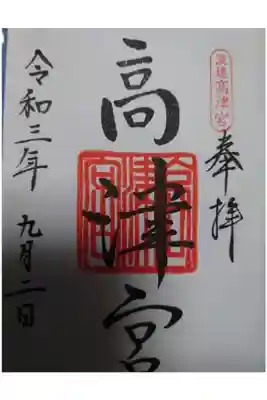 浪速高津宮
奉拝
高津宮
令和三年 九月二日